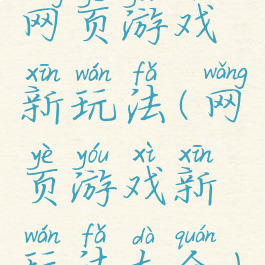 网页游戏
xīn wán fǎ wǎng
新玩法(网
yè yóu xì xīn
页游戏新
wán fǎ dà quán
玩法大全)